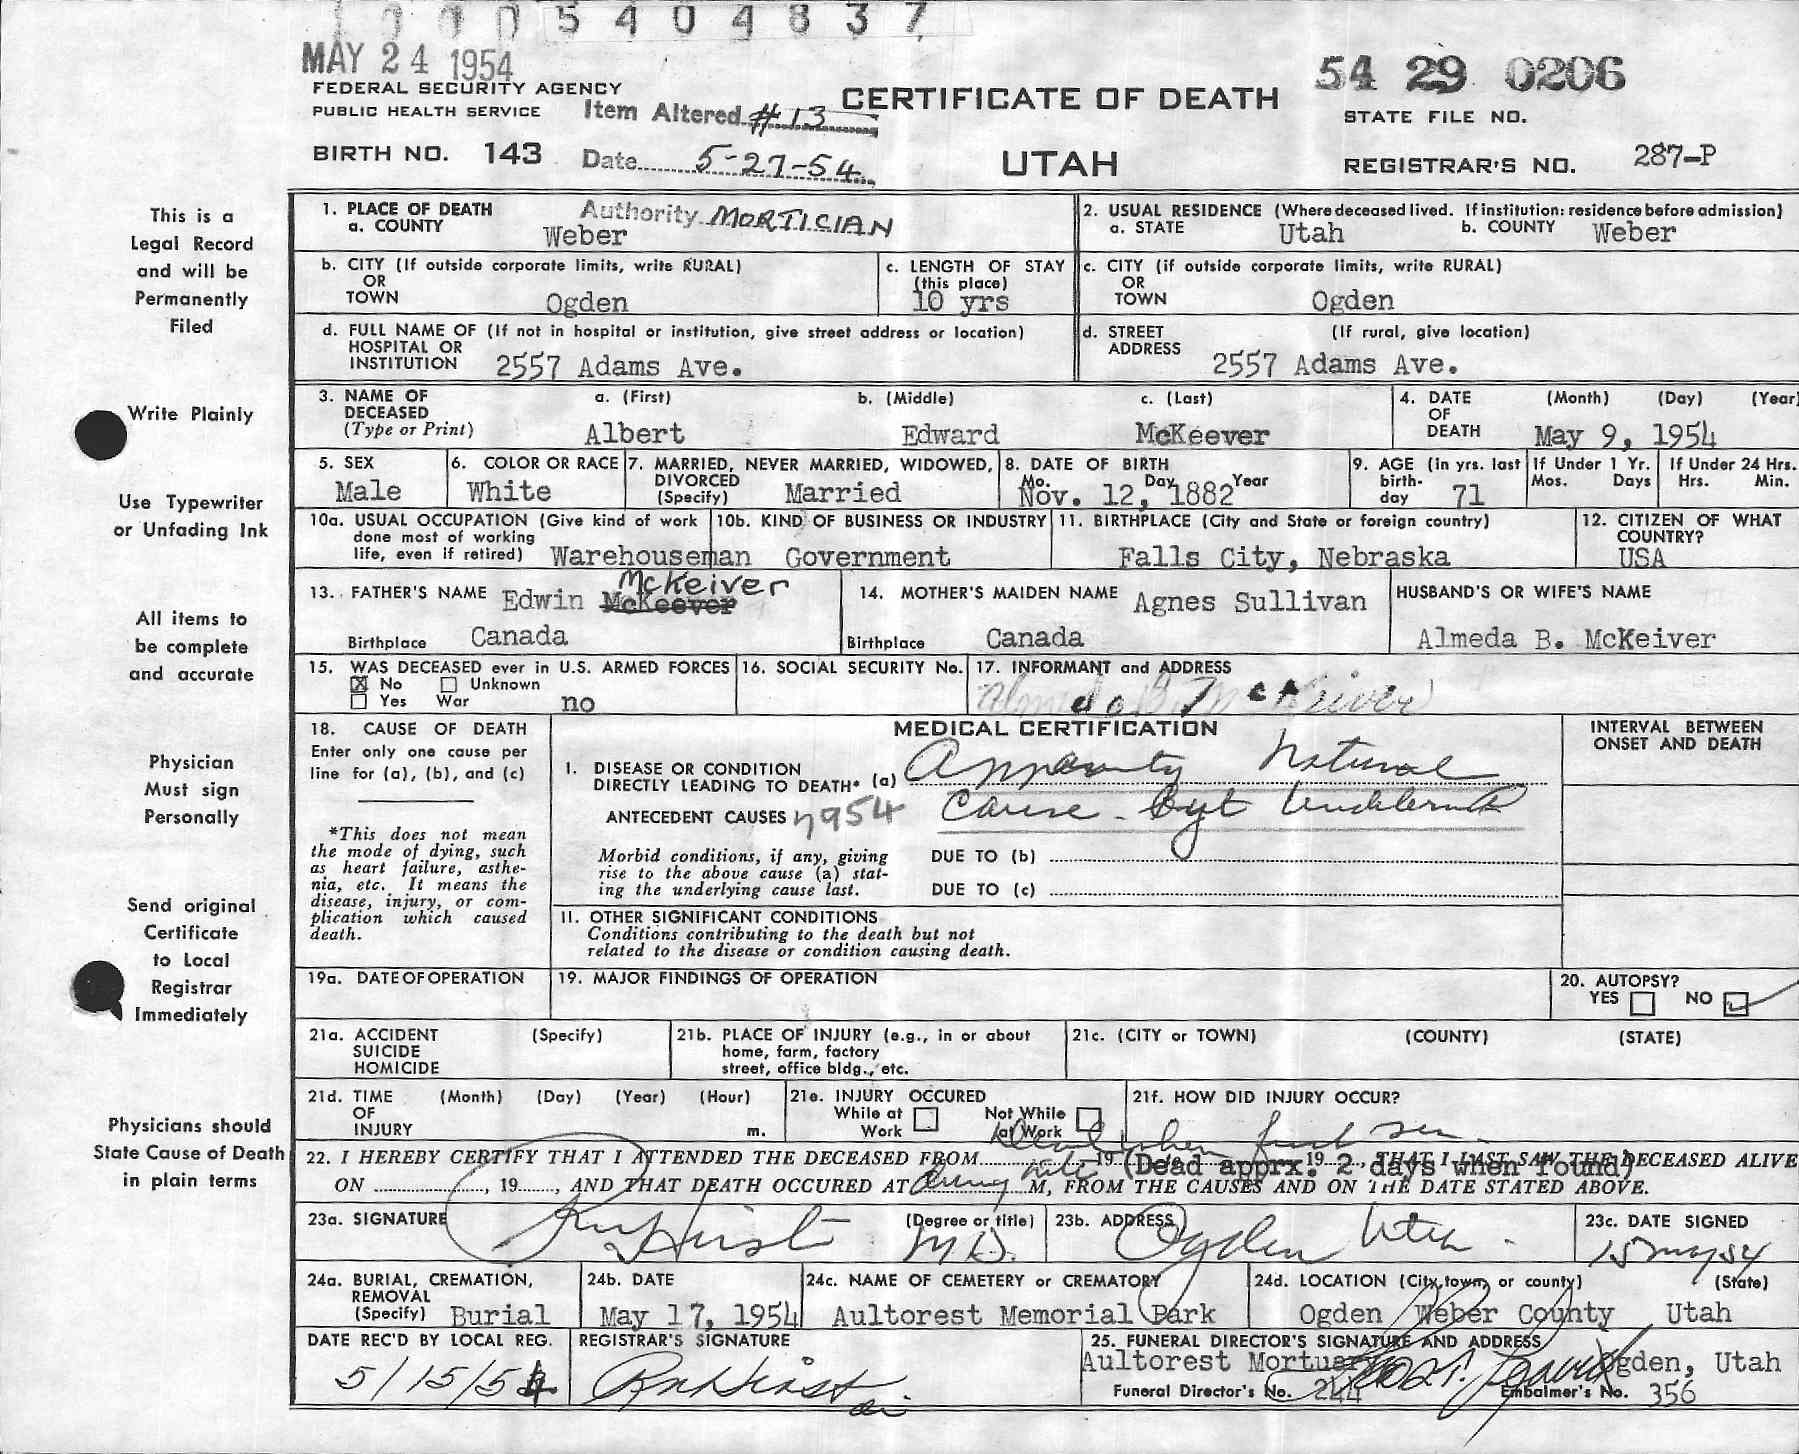 1 0 0 0 5 4 0 4 8 3 7
MAY 24 1954
54 29 0206
FEDERAL SECURITY AGENCY
PUBLIC HEALTH SERVICE
Item Altered #13
CERTIFICATE OF DEATH
STATE FILE NO.
BIRTH NO. 143
Date 5-27-54
UTAH
REGISTRAR'S NO. 287-P
Authority MORTICIAN
This is a
Legal Record
and will be
Permanently
Filed
Write Plainly
Use Typewriter
or Unfading Ink
All items to
be complete
and accurate
Physician
Must sign
Personally
Send original
Certificate
to Local
Registrar
Immediately
Physicians should
State Cause of Death
in plain terms
1. PLACE OF DEATH
a. COUNTY Weber
2. USUAL RESIDENCE (Where deceased lived. If institution: residence before admission)
a. STATE Utah b. COUNTY Weber
b. CITY (If outside corporate limits, write RURAL)
OR
TOWN Ogden
c. LENGTH OF STAY
(this place)
10 yrs
c. CITY (if outside corporate limits, write RURAL)
OR
TOWN Ogden
d. FULL NAME OF (If not in hospital or institution, give street address or location)
HOSPITAL OR
INSTITUTION 2557 Adams Ave.
d. STREET (If rural, give location)
ADDRESS 2557 Adams Ave.
3. NAME OF a. (First) b. (Middle) c. (Last)
DECEASED
(Type or Print) Albert Edward McKeever
4. DATE (Month) (Day) (Year)
OF
DEATH May 9, 1954
5. SEX
Male
6. COLOR OR RACE
White
7. MARRIED, NEVER MARRIED, WIDOWED,
DIVORCED
(Specify) Married
8. DATE OF BIRTH
Mo. Day Year
Nov. 12, 1882
9. AGE (in yrs. last
birth-
day 71
If Under 1 Yr.
Mos. Days
If Under 24 Hrs.
Hrs. Min.
10a. USUAL OCCUPATION (Give kind of work
done most of working
life, even if retired) Warehouseman
10b. KIND OF BUSINESS OR INDUSTRY
Government
11. BIRTHPLACE (City and State or foreign country)
Falls City, Nebraska
12. CITIZEN OF WHAT
COUNTRY?
USA
McKeiver
13. FATHER'S NAME Edwin McKeever
Birthplace Canada
14. MOTHER'S MAIDEN NAME Agnes Sullivan
Birthplace Canada
HUSBAND'S OR WIFE'S NAME
Almeda B. McKeiver
15. WAS DECEASED ever in U.S. ARMED FORCES
No Unknown
Yes War no
16. SOCIAL SECURITY No.
17. INFORMANT and ADDRESS
Almeda B. McKeiver
18. CAUSE OF DEATH
Enter only one cause per
line for (a), (b), and (c)
*This does not mean
the mode of dying, such
as heart failure, asthe-
nia, etc. It means the
disease, injury, or com-
plication which caused
death.
MEDICAL CERTIFICATION
INTERVAL BETWEEN
ONSET AND DEATH
I. DISEASE OR CONDITION
DIRECTLY LEADING TO DEATH* (a) Natural
ANTECEDENT CAUSES Cause
Morbid conditions, if any, giving
rise to the above cause (a) stat-
ing the underlying cause last.
DUE TO (b)
DUE TO (c)
II. OTHER SIGNIFICANT CONDITIONS
Conditions contributing to the death but not
related to the disease or condition causing death.
19a. DATE OF OPERATION
19. MAJOR FINDINGS OF OPERATION
20. AUTOPSY?
YES NO
21a. ACCIDENT (Specify)
SUICIDE
HOMICIDE
21b. PLACE OF INJURY (e.g., in or about
home, farm, factory
street, office bldg., etc.
21c. (CITY or TOWN) (COUNTY) (STATE)
21d. TIME (Month) (Day) (Year) (Hour)
OF
INJURY m.
21e. INJURY OCCURED
While at Work
Not While at Work
21f. HOW DID INJURY OCCUR?
Dead when first seen
22. I HEREBY CERTIFY THAT I ATTENDED THE DECEASED FROM 19 (Dead apprx. 2 days when found) 19 , THAT I LAST SAW THE DECEASED ALIVE
ON , 19 , AND THAT DEATH OCCURED AT M, FROM THE CAUSES AND ON THE DATE STATED ABOVE.
23a. SIGNATURE (Degree or title)
M.D.
23b. ADDRESS
Ogden Utah
23c. DATE SIGNED
15 May 54
24a. BURIAL, CREMATION,
REMOVAL
(Specify) Burial
24b. DATE
May 17, 1954
24c. NAME OF CEMETERY or CREMATORY
Aultorest Memorial Park
24d. LOCATION (City, town, or county) (State)
Ogden Weber County Utah
DATE REC'D BY LOCAL REG.
5/15/54
REGISTRAR'S SIGNATURE
25. FUNERAL DIRECTOR'S SIGNATURE AND ADDRESS
Aultorest Mortuary Ogden, Utah
Funeral Director's No. 244 Embalmer's No. 356